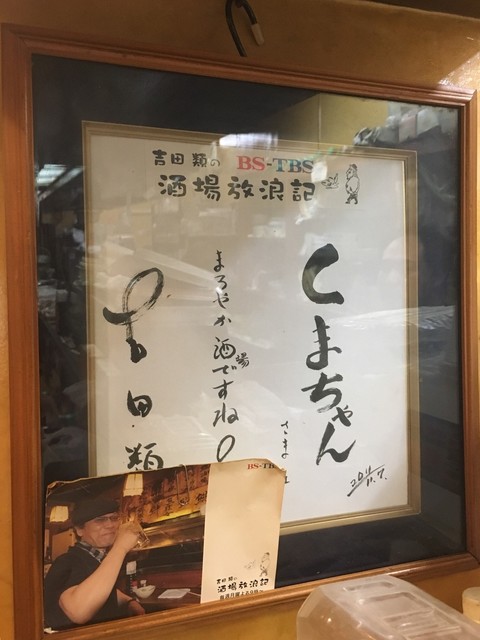 吉田 類の BS-TBS
酒場放浪記
くまちゃん
さま
まろやか酒場ですね
吉田 類
2011.11.7.
BS-TBS
吉田 類の
酒場放浪記